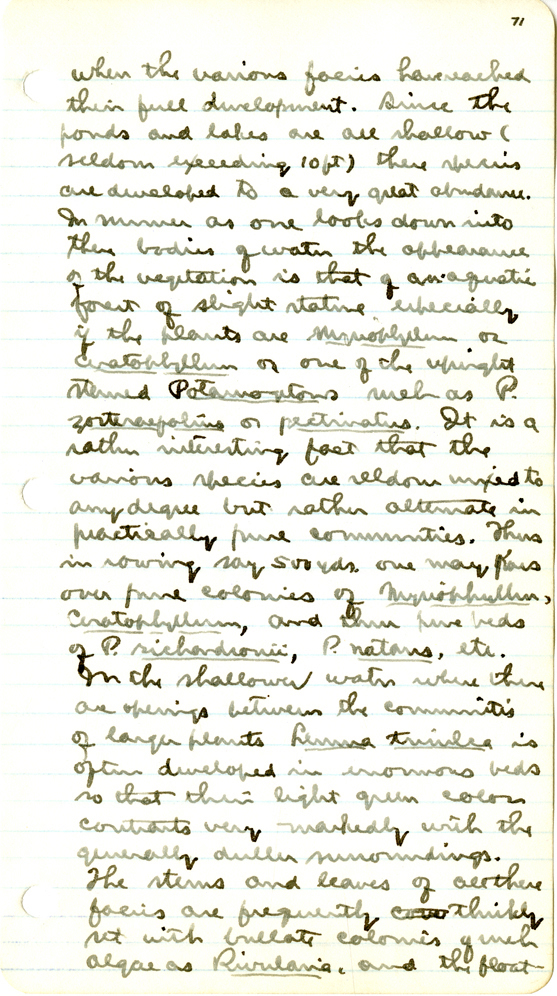 71
when the various facies have reached
their full development. Since the
ponds and lakes are all shallow (
seldom exceeding 10 ft) these species
are developed to a very great abundance.
In summer as one looks down into
these bodies of water the appearance
of the vegetation is that of an aquatic
forest of slight stature especially
if the plants are Myriophyllum or
Ceratophyllum or one of the upright
stemed Potamogetons such as P.
zosteraefolius or pectinatus. It is a
rather interesting fact that the
various species are seldom mixed to
any degree but rather alternate in
practically pure communities. Thus
in rowing say 500 yds. one may pass
over pure colonies of Myriophyllum,
Ceratophyllum, and then pure beds
of P. richardsonii, P. natans, etc.
In the shallower water where there
are openings between the communities
of larger plants Lemna trisulca is
often developed in enormous beds
so that their light green color
contrasts very markedly with the
generally duller surroundings.
The stems and leaves of all these
facies are frequently thickly
set with bullate colonies of such
algae as Rivularia, and the float-